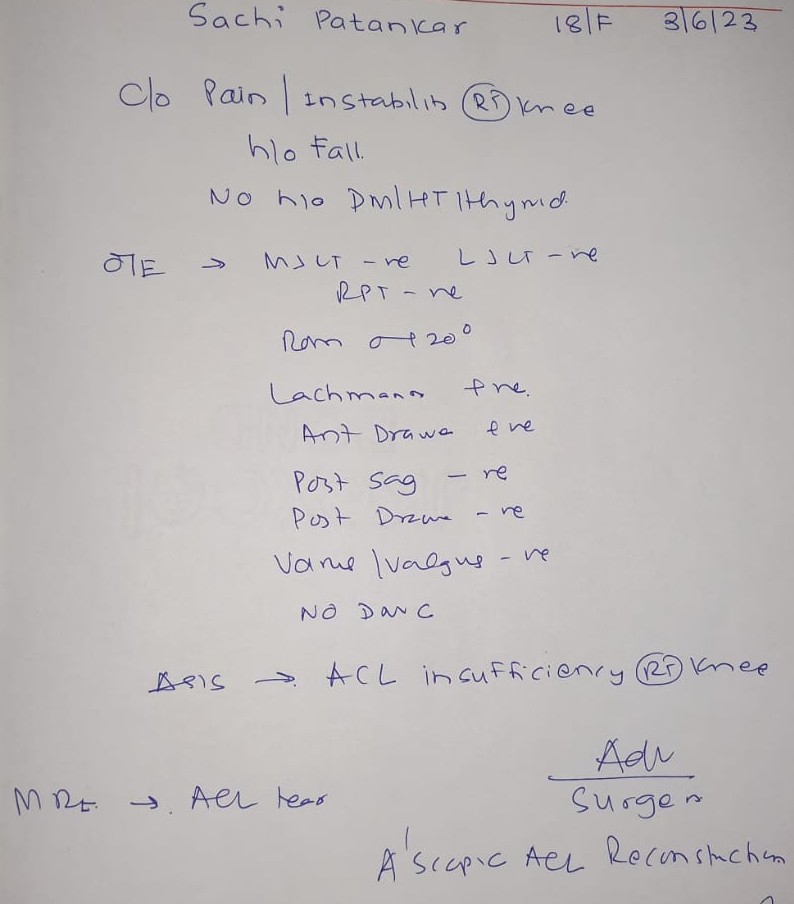 Sachi Patankar 18/F 3/6/23
C/o Pain / Instability (RT) Knee
h/o Fall.
No h/o DM/HT/thyroid
O/E → MJLT -ve LJLT -ve
RPT -ve
Rom 0-120°
Lachmans +ve.
Ant Drawer +ve
Post Sag -ve
Post Drawer -ve
Varus/Valgus -ve
NO DNVC
→ ACL insufficiency (RT) Knee
Adv
MRI → ACL tear
Surgery
A'scopic ACL Reconstruction